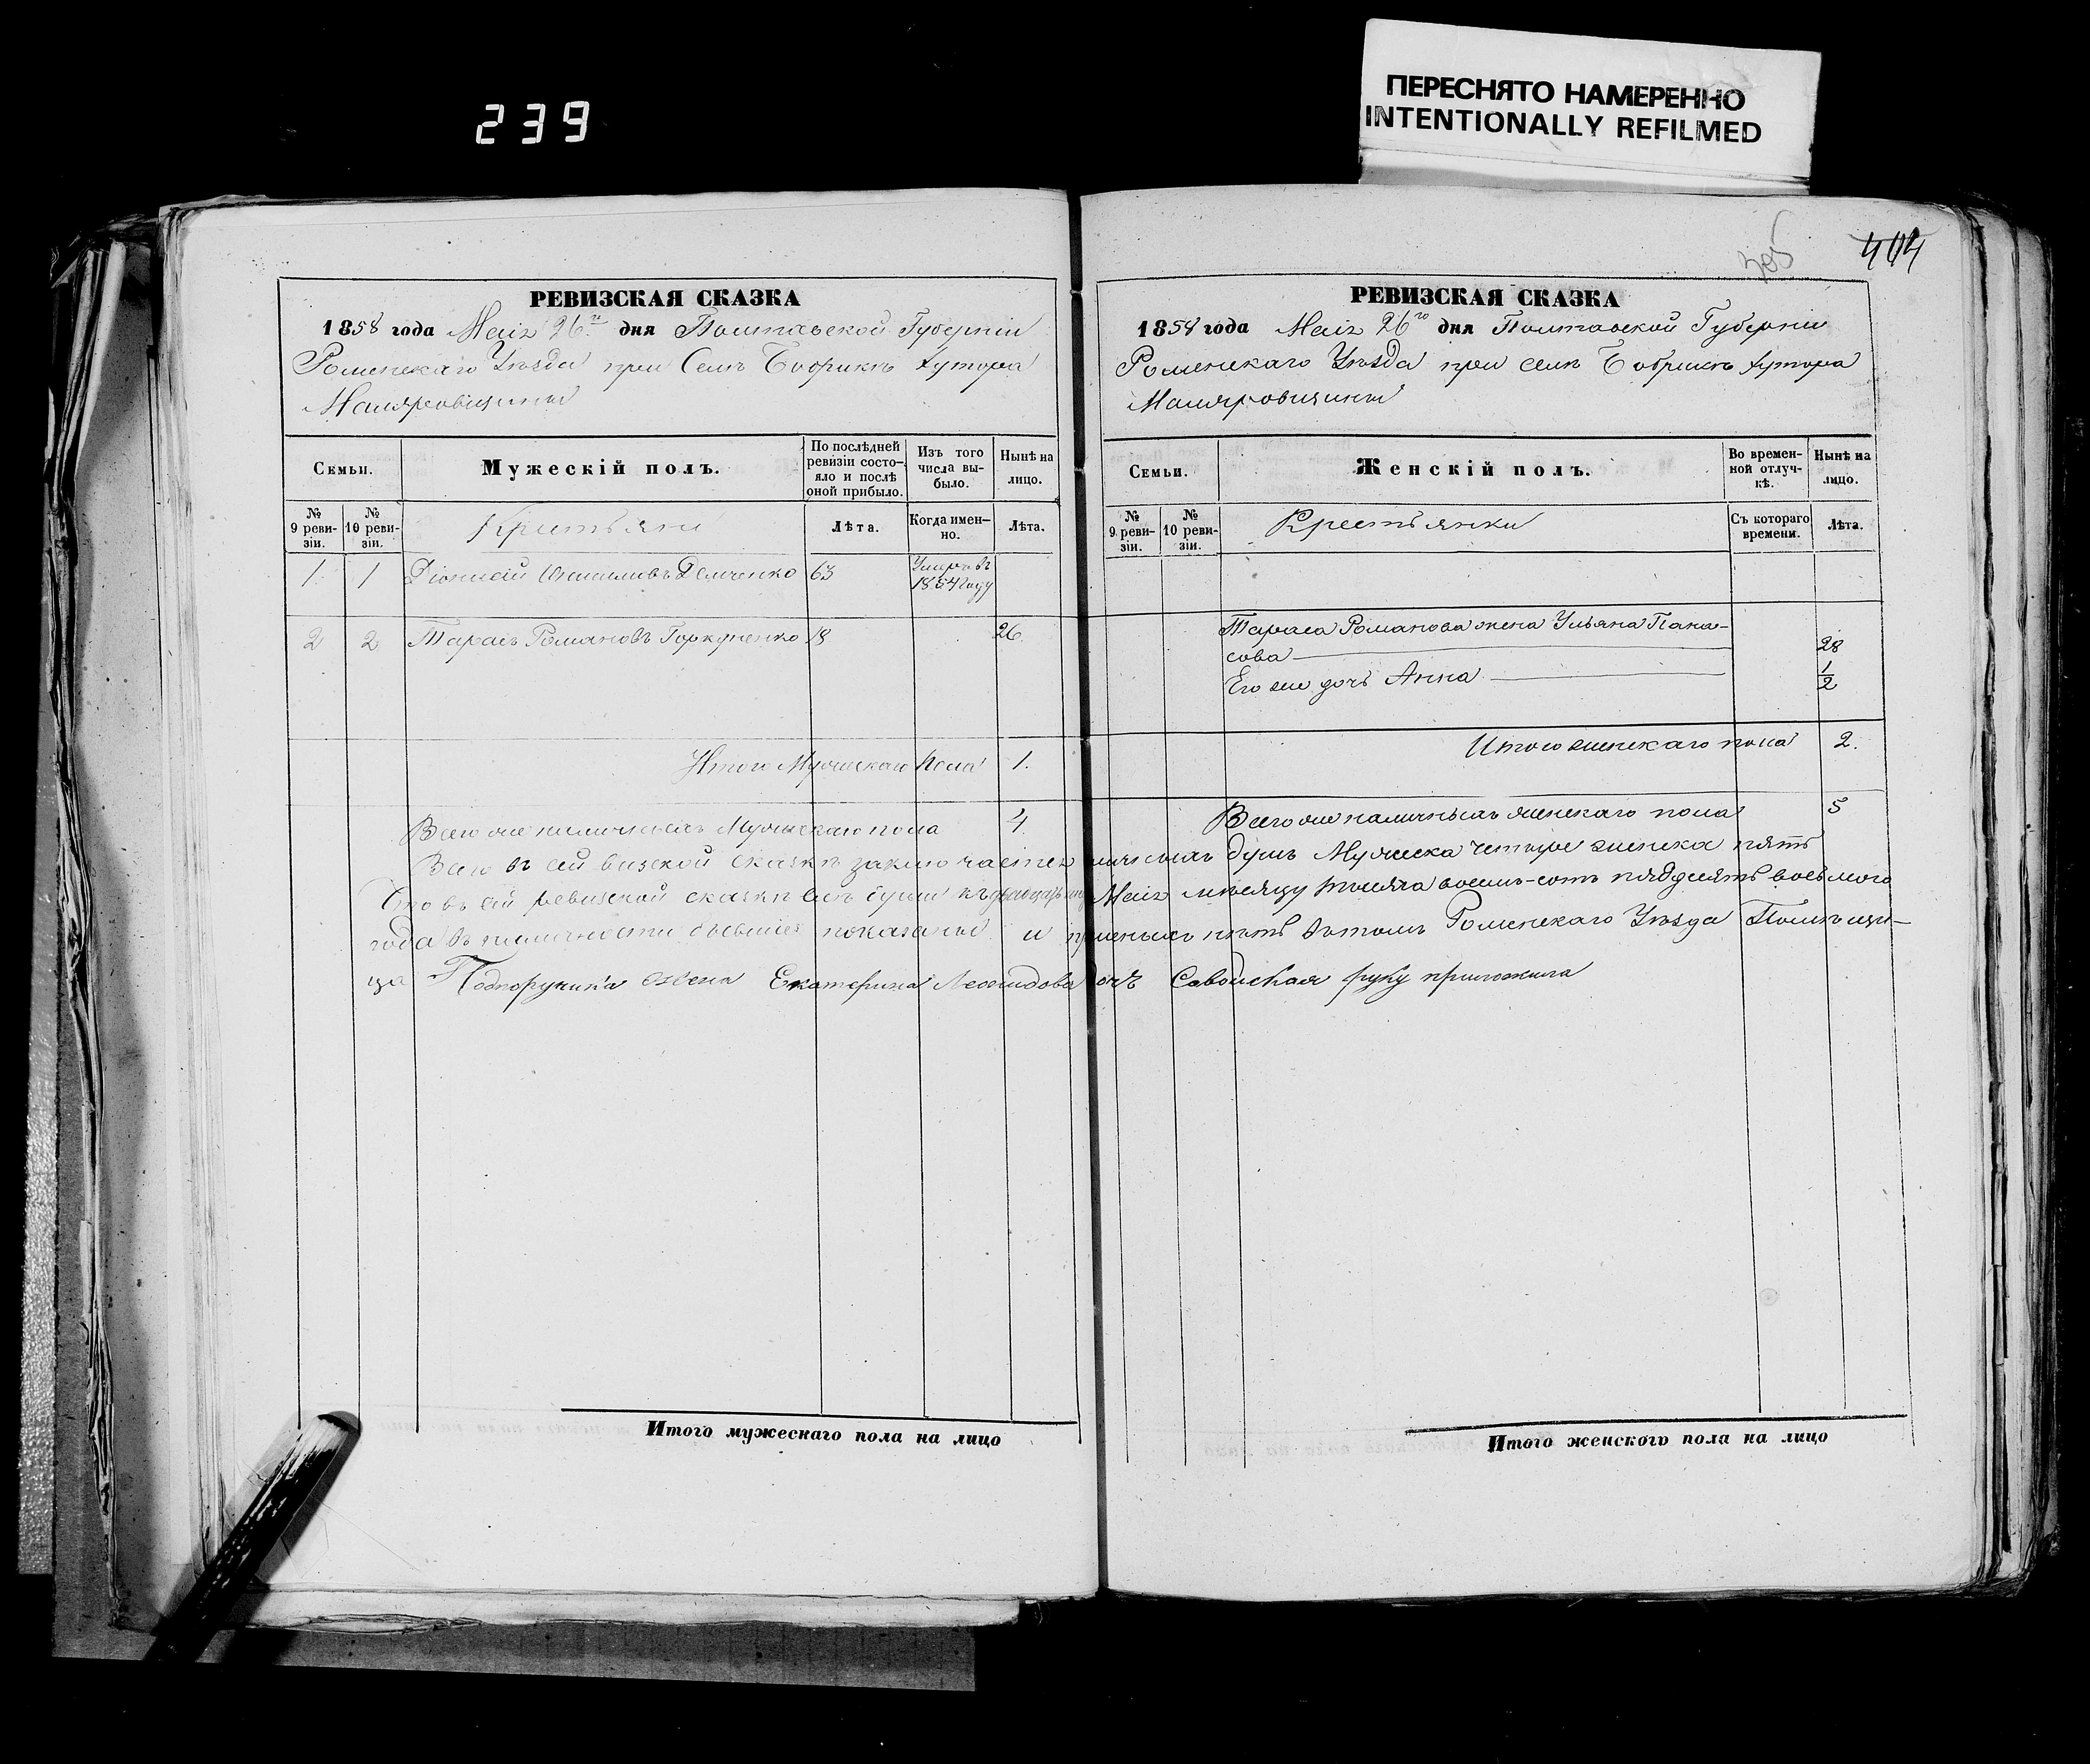 239
ПЕРЕСНЯТО НАМЕРЕННО
INTENTIONALLY REFILMED
305
404
РЕВИЗСКАЯ СКАЗКА
1858 года Маія 26го дня Полтавской Губерніи
Роменскаго Уѣзда при Селѣ Бобрикѣ хутора
Маляровщины
Семьи.
Мужескій полъ.
По послѣдней
ревизіи состо-
яло и послѣ
оной прибыло.
Изъ того
числа вы-
было.
Нынѣ на
лицо.
№
9 реви-
зіи.
№
10 реви-
зіи.
Крестьяне
Лѣта.
Когда имен-
но.
Лѣта.
1 1 Діонисій Демченко 63 Умеръ въ
1854 году
2 2 Тарасъ Романовъ Горкуненко 18 26
Итого Мужескаго Пола 1.
Всего же наличныхъ Мужескаго пола 4.
РЕВИЗСКАЯ СКАЗКА
1858 года Маія 26го дня Полтавской Губерніи
Роменскаго Уѣзда при селѣ Бобрикѣ хутора
Маляровщины
Семьи.
Женскій полъ.
Во времен-
ной отлуч-
кѣ.
Нынѣ на
лицо.
№
9 реви-
зіи.
№
10 реви-
зіи.
Крестьянки
Съ котораго
времени.
Лѣта.
Тараса Романова жена Ульяна Пана-
сова 28
Его же дочь Анна 1/2
Итого женскаго пола 2.
Всего же наличныхъ женскаго пола 5
Всего въ сей визской сказкѣ заключается душъ Мужеска четыре женска пять
Что въ сей ревизской сказкѣ всѣ души къ Маія мѣсяцу тысяча восемь-сотъ пяддесятъ восьмого
года въ наличности бывшіе показаны и нѣтъ вътомъ Роменскаго Уѣзда Помѣщи-
ца Подпоручика жена Екатерина Леонидова дочь Савойская руку приложила
Итого мужескаго пола на лицо
Итого женского пола на лицо